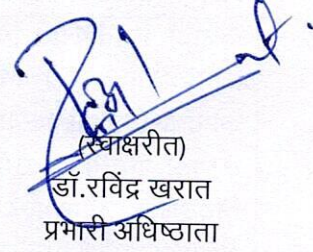 (स्वाक्षरीत)
डॉ.रविंद्र खरात
प्रभारी अधिष्ठाता